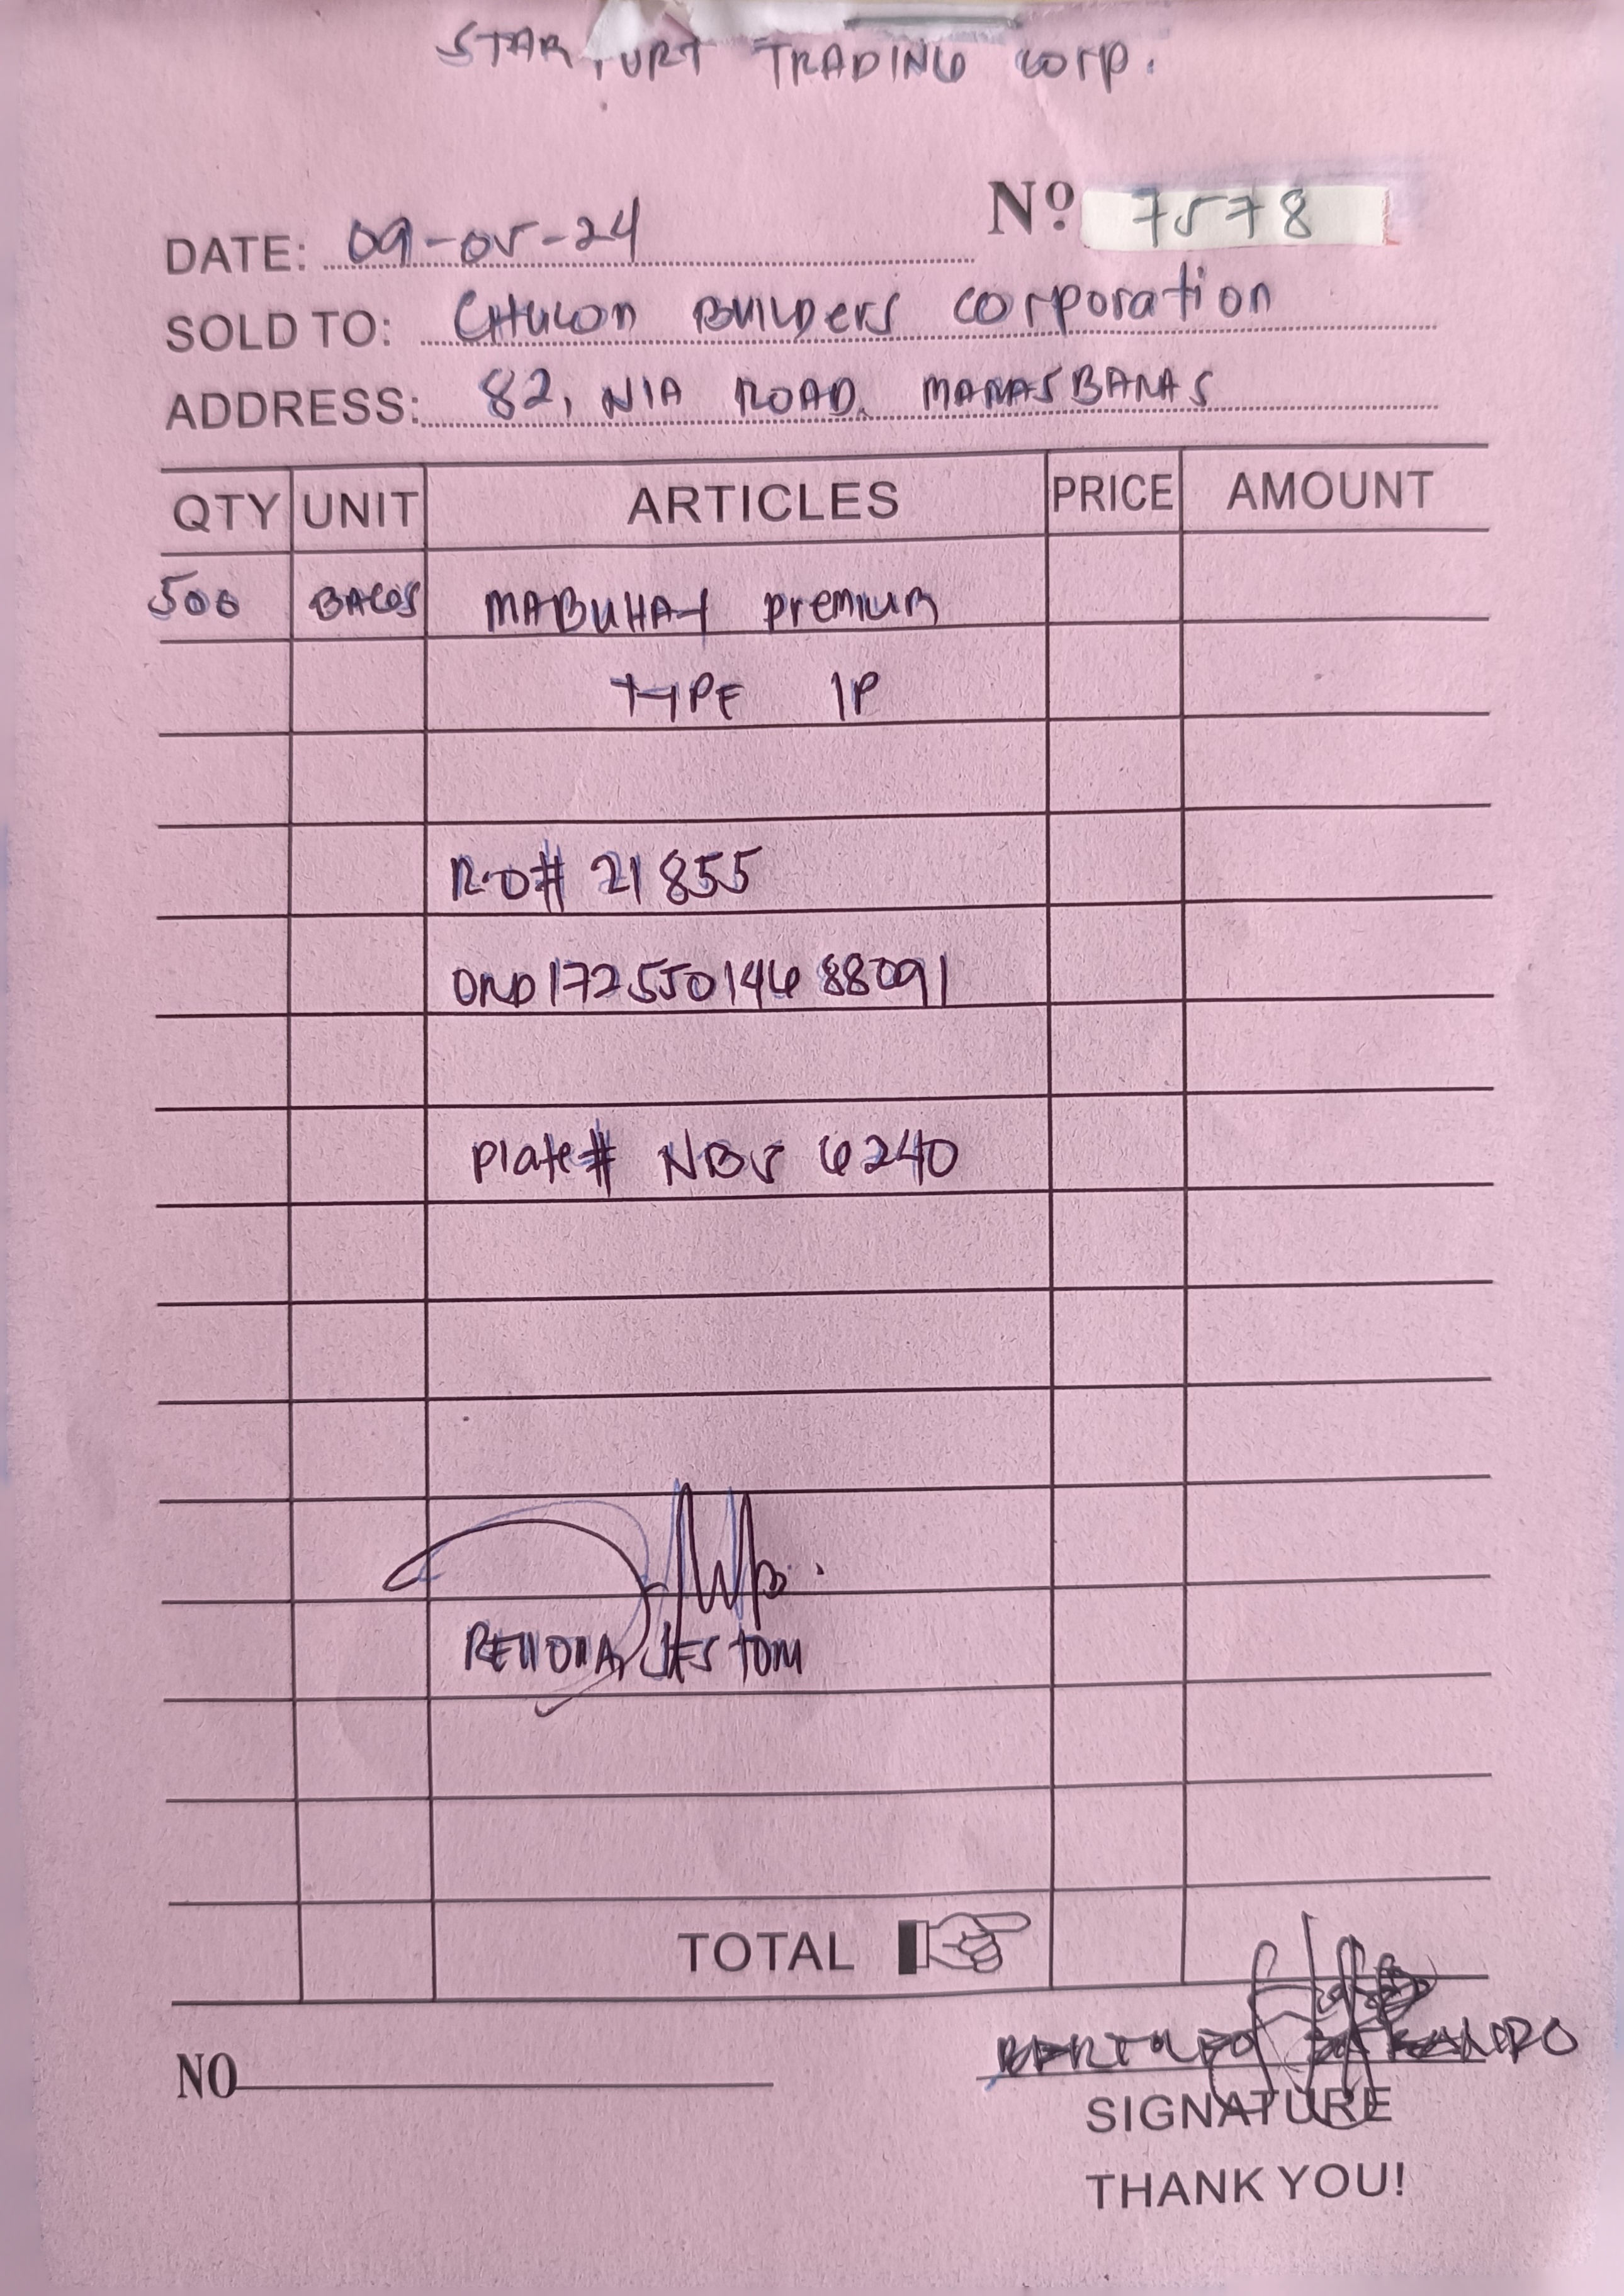 STAR TURT TRADING Corp.
Nº 7578
DATE: 09-05-24
SOLD TO: CHULON BUILDERS Corporation
ADDRESS: 82, NIA ROAD, MANASBANAS
QTY UNIT ARTICLES PRICE AMOUNT
500 BAGS MABUHAY premium
TYPE 1P
R.O# 21855
ORD17255014688091
Plate# NBS 6240
JESTOM
TOTAL
NO
SIGNATURE
THANK YOU!